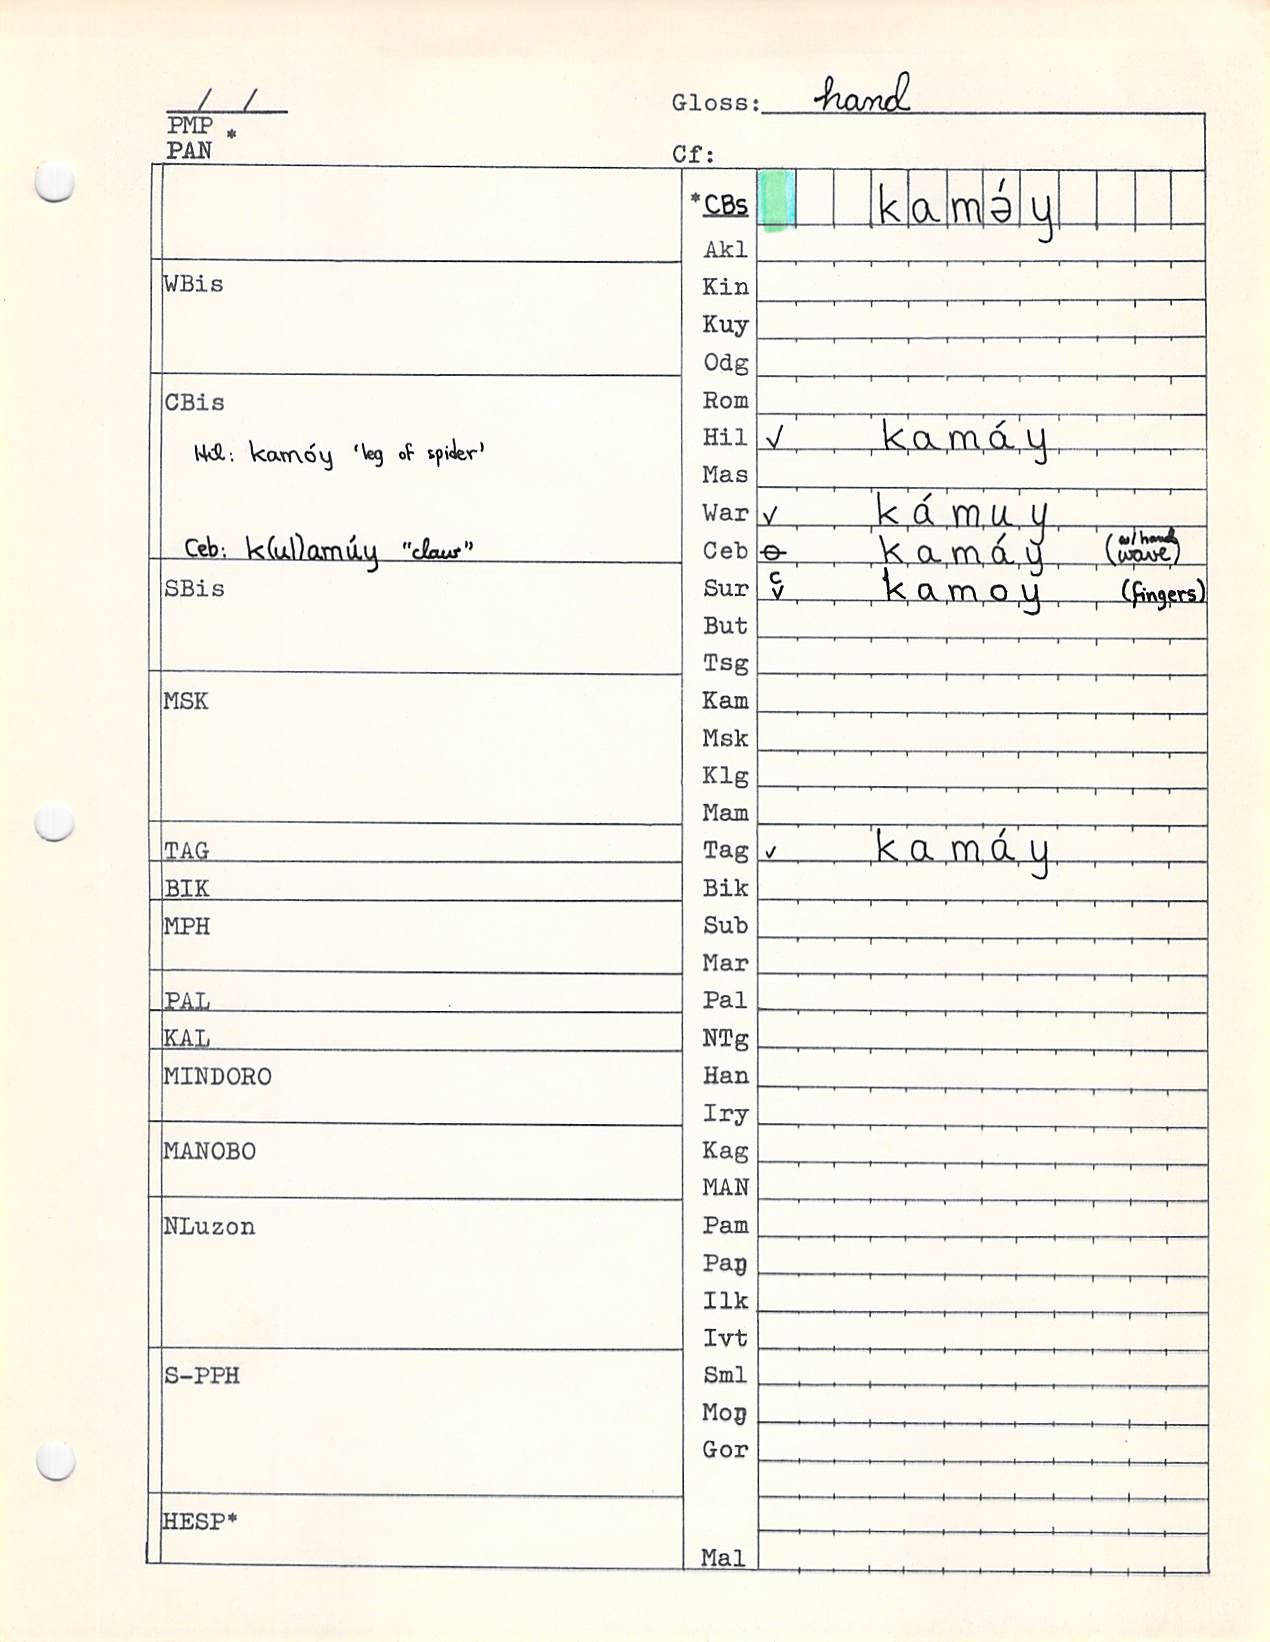 / /
Gloss: hand
PMP *
PAN
Cf:
*CBs kamə́y
Akl
WBis
Kin
Kuy
Odg
CBis
Rom
Hil ✓ kamáy
Hil: kamóy 'leg of spider'
Mas
War ✓ kámuy
Ceb: k(ul)amúy "claw"
Ceb ⊖ kamáy (w/hand wave)
SBis
Sur c ✓ kamoy (fingers)
But
Tsg
MSK
Kam
Msk
Klg
Mam
TAG
Tag ✓ kamáy
BIK
Bik
MPH
Sub
Mar
PAL
Pal
KAL
NTg
MINDORO
Han
Iry
MANOBO
Kag
MAN
NLuzon
Pam
Paŋ
Ilk
Ivt
S-PPH
Sml
Moŋ
Gor
HESP*
Mal